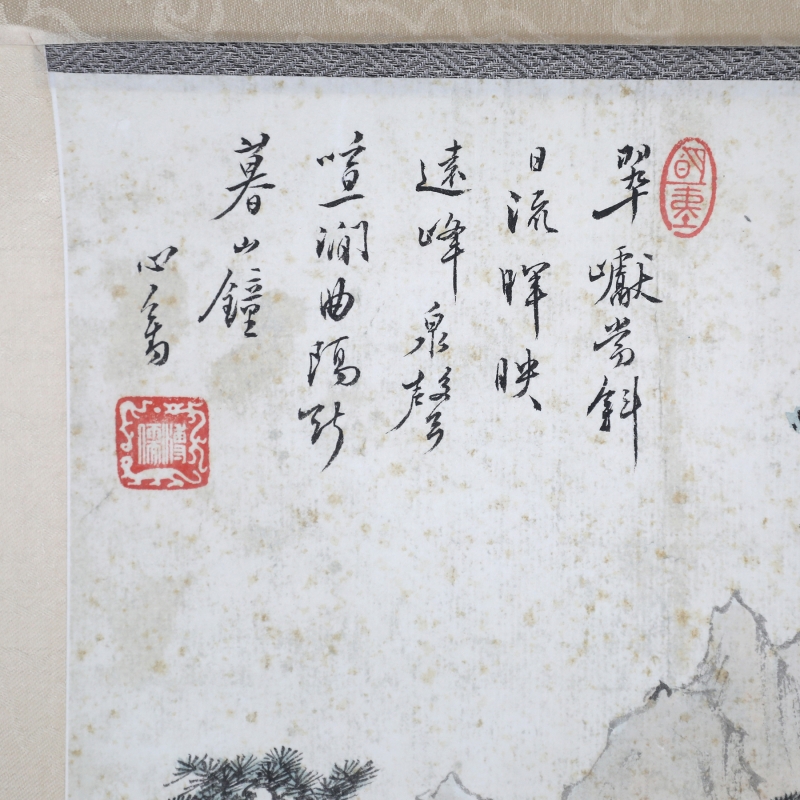 翠巘當斜
日流暉映
遠峰泉聲
喧澗曲隔斷
暮山鐘
心畬
溥儒